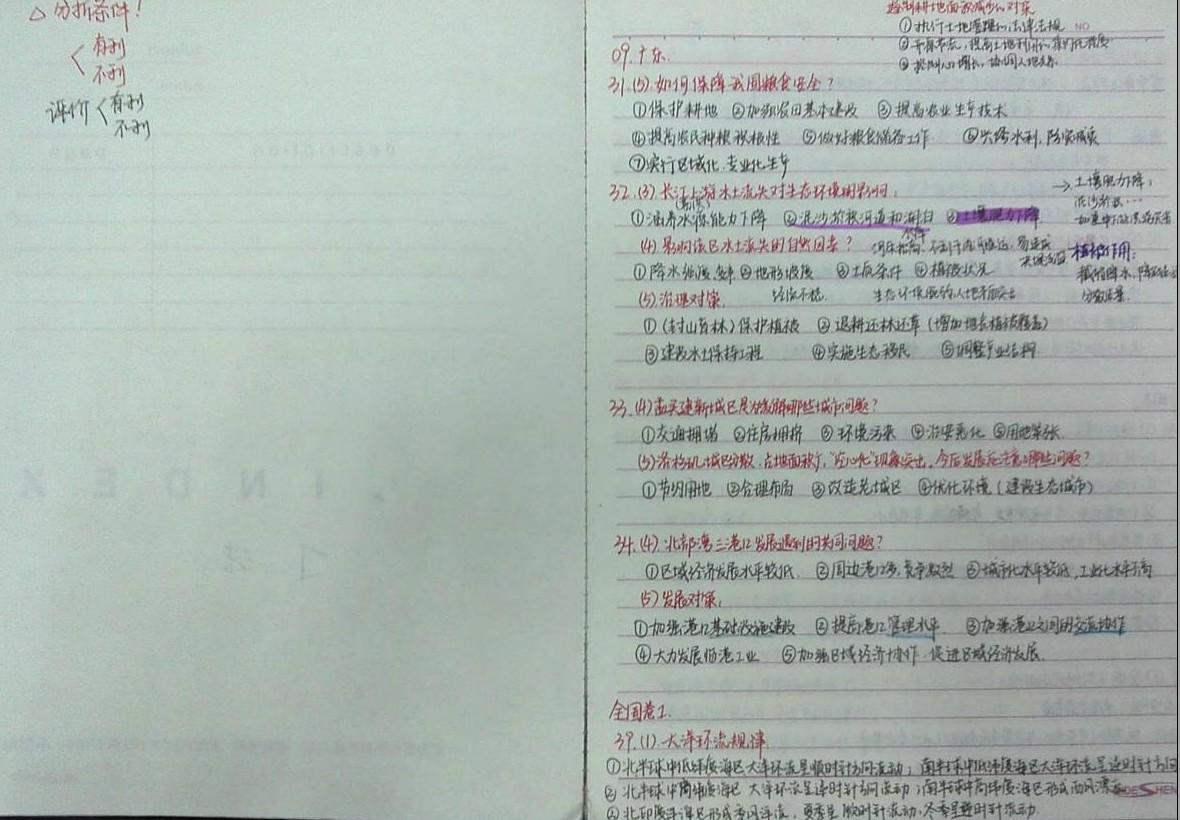 △分析条件！
有利
不利
评价 有利
不利
控制耕地面积减少的对策
①执行土地管理的法律法规 NO
②开源节流，提高土地利用的集约化程度
③控制人口增长，协调人地关系
09.广东.
31.(5).如何保障我国粮食安全？
①保护耕地 ②加强农田基本建设 ③提高农业生产技术
④提高农民种粮积极性 ⑤做好粮食储备工作 ⑥兴修水利，防灾减灾
⑦实行区域化、专业化生产
32.(3)长江上游水土流失对生态环境的影响.
→土壤肥力下降；
泥沙淤积…
①涵养水源能力下降 ②泥沙淤积河道和湖泊 ③土壤肥力下降
(4)影响该区水土流失的自然因素？
植被作用：
①降水强度 ②地形坡度 ③土质条件 ④植被状况
截留降水
(5)治理对策
①(封山育林)保护植被 ②退耕还林还草(增加地表植被覆盖)
③建设水土保持工程 ④实施生态移民 ⑤调整产业结构
33.(4)孟买建新城区是为缓解哪些城市问题？
①交通拥堵 ②住房拥挤 ③环境污染 ④治安恶化 ⑤用地紧张.
(5)洛杉矶城区分散，占地面积广，"空心化"现象突出，今后发展应注意哪些问题？
①节约用地 ②合理布局 ③改造老城区 ④优化环境(建设生态城市)
34.(4).北部湾三港口发展遇到的共同问题？
①区域经济发展水平较低. ②周边港口多,竞争激烈 ③城市化水平较低,工业化水平不高
(5)发展对策.
①加强港口基础设施建设 ②提高港口管理水平. ③加强港口之间的交流协作
④大力发展临港工业 ⑤加强区域经济协作.促进区域经济发展.
全国卷1.
39.(1).大洋环流规律
①北半球中低纬度海区大洋环流呈顺时针方向流动；南半球中低纬度海区大洋环流呈逆时针方向
②北半球中高纬度海区大洋环流呈逆时针方向流动；南半球中高纬度海区形成西风漂流
③北印度洋海区形成季风洋流，夏季呈顺时针流动,冬季呈逆时针流动.